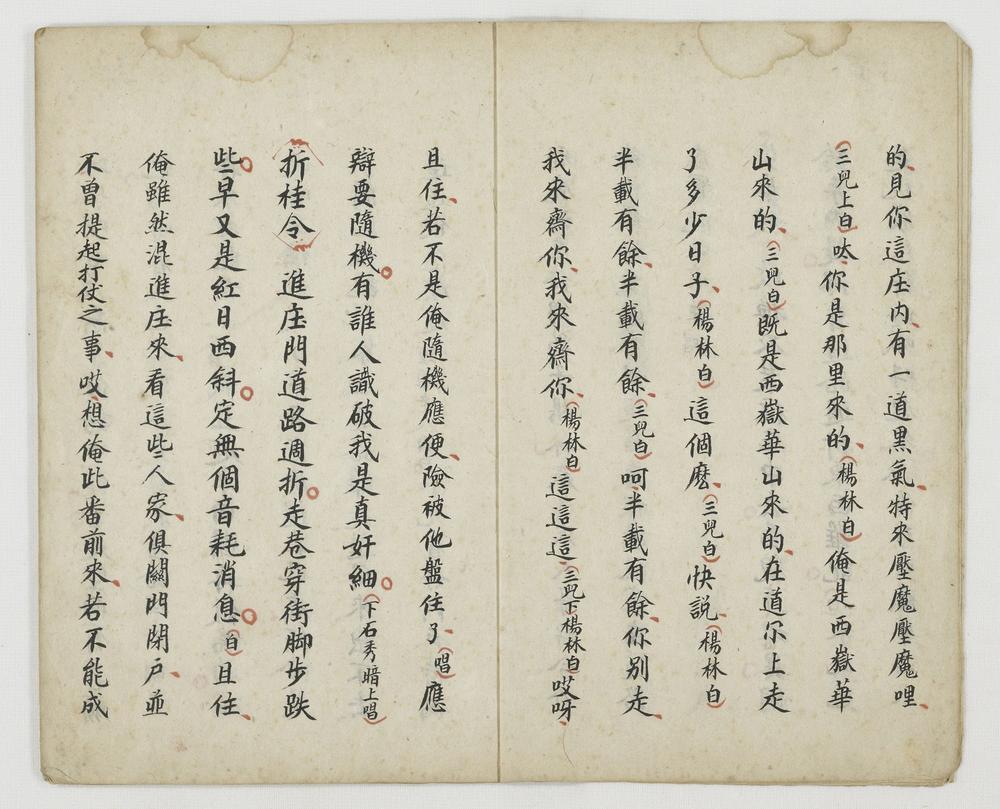 的見你這庄内有一道黑氣特來壓魔壓魔哩
三兒上白呔你是那里來的楊林白俺是西嶽華
山來的三兒白既是西嶽華山來的在道尔上走
了多少日子楊林白這個麽三兒白快説楊林白
半載有餘半載有餘三兒白呵半載有餘你别走
我來齋你我來齋你楊林白這這這三兒下楊林白哎呀
且住若不是俺隨機應便險被他盤住了唱應
辯要隨機有誰人識破我是真奸細下石秀暗上唱
折桂令進庄門道路週折走巷穿街脚步跌
些早又是紅日西斜定無個音耗消息白且住
俺雖然混進庄來看這些人家俱關門閉户並
不曾提起打仗之事哎想俺此番前來若不能成